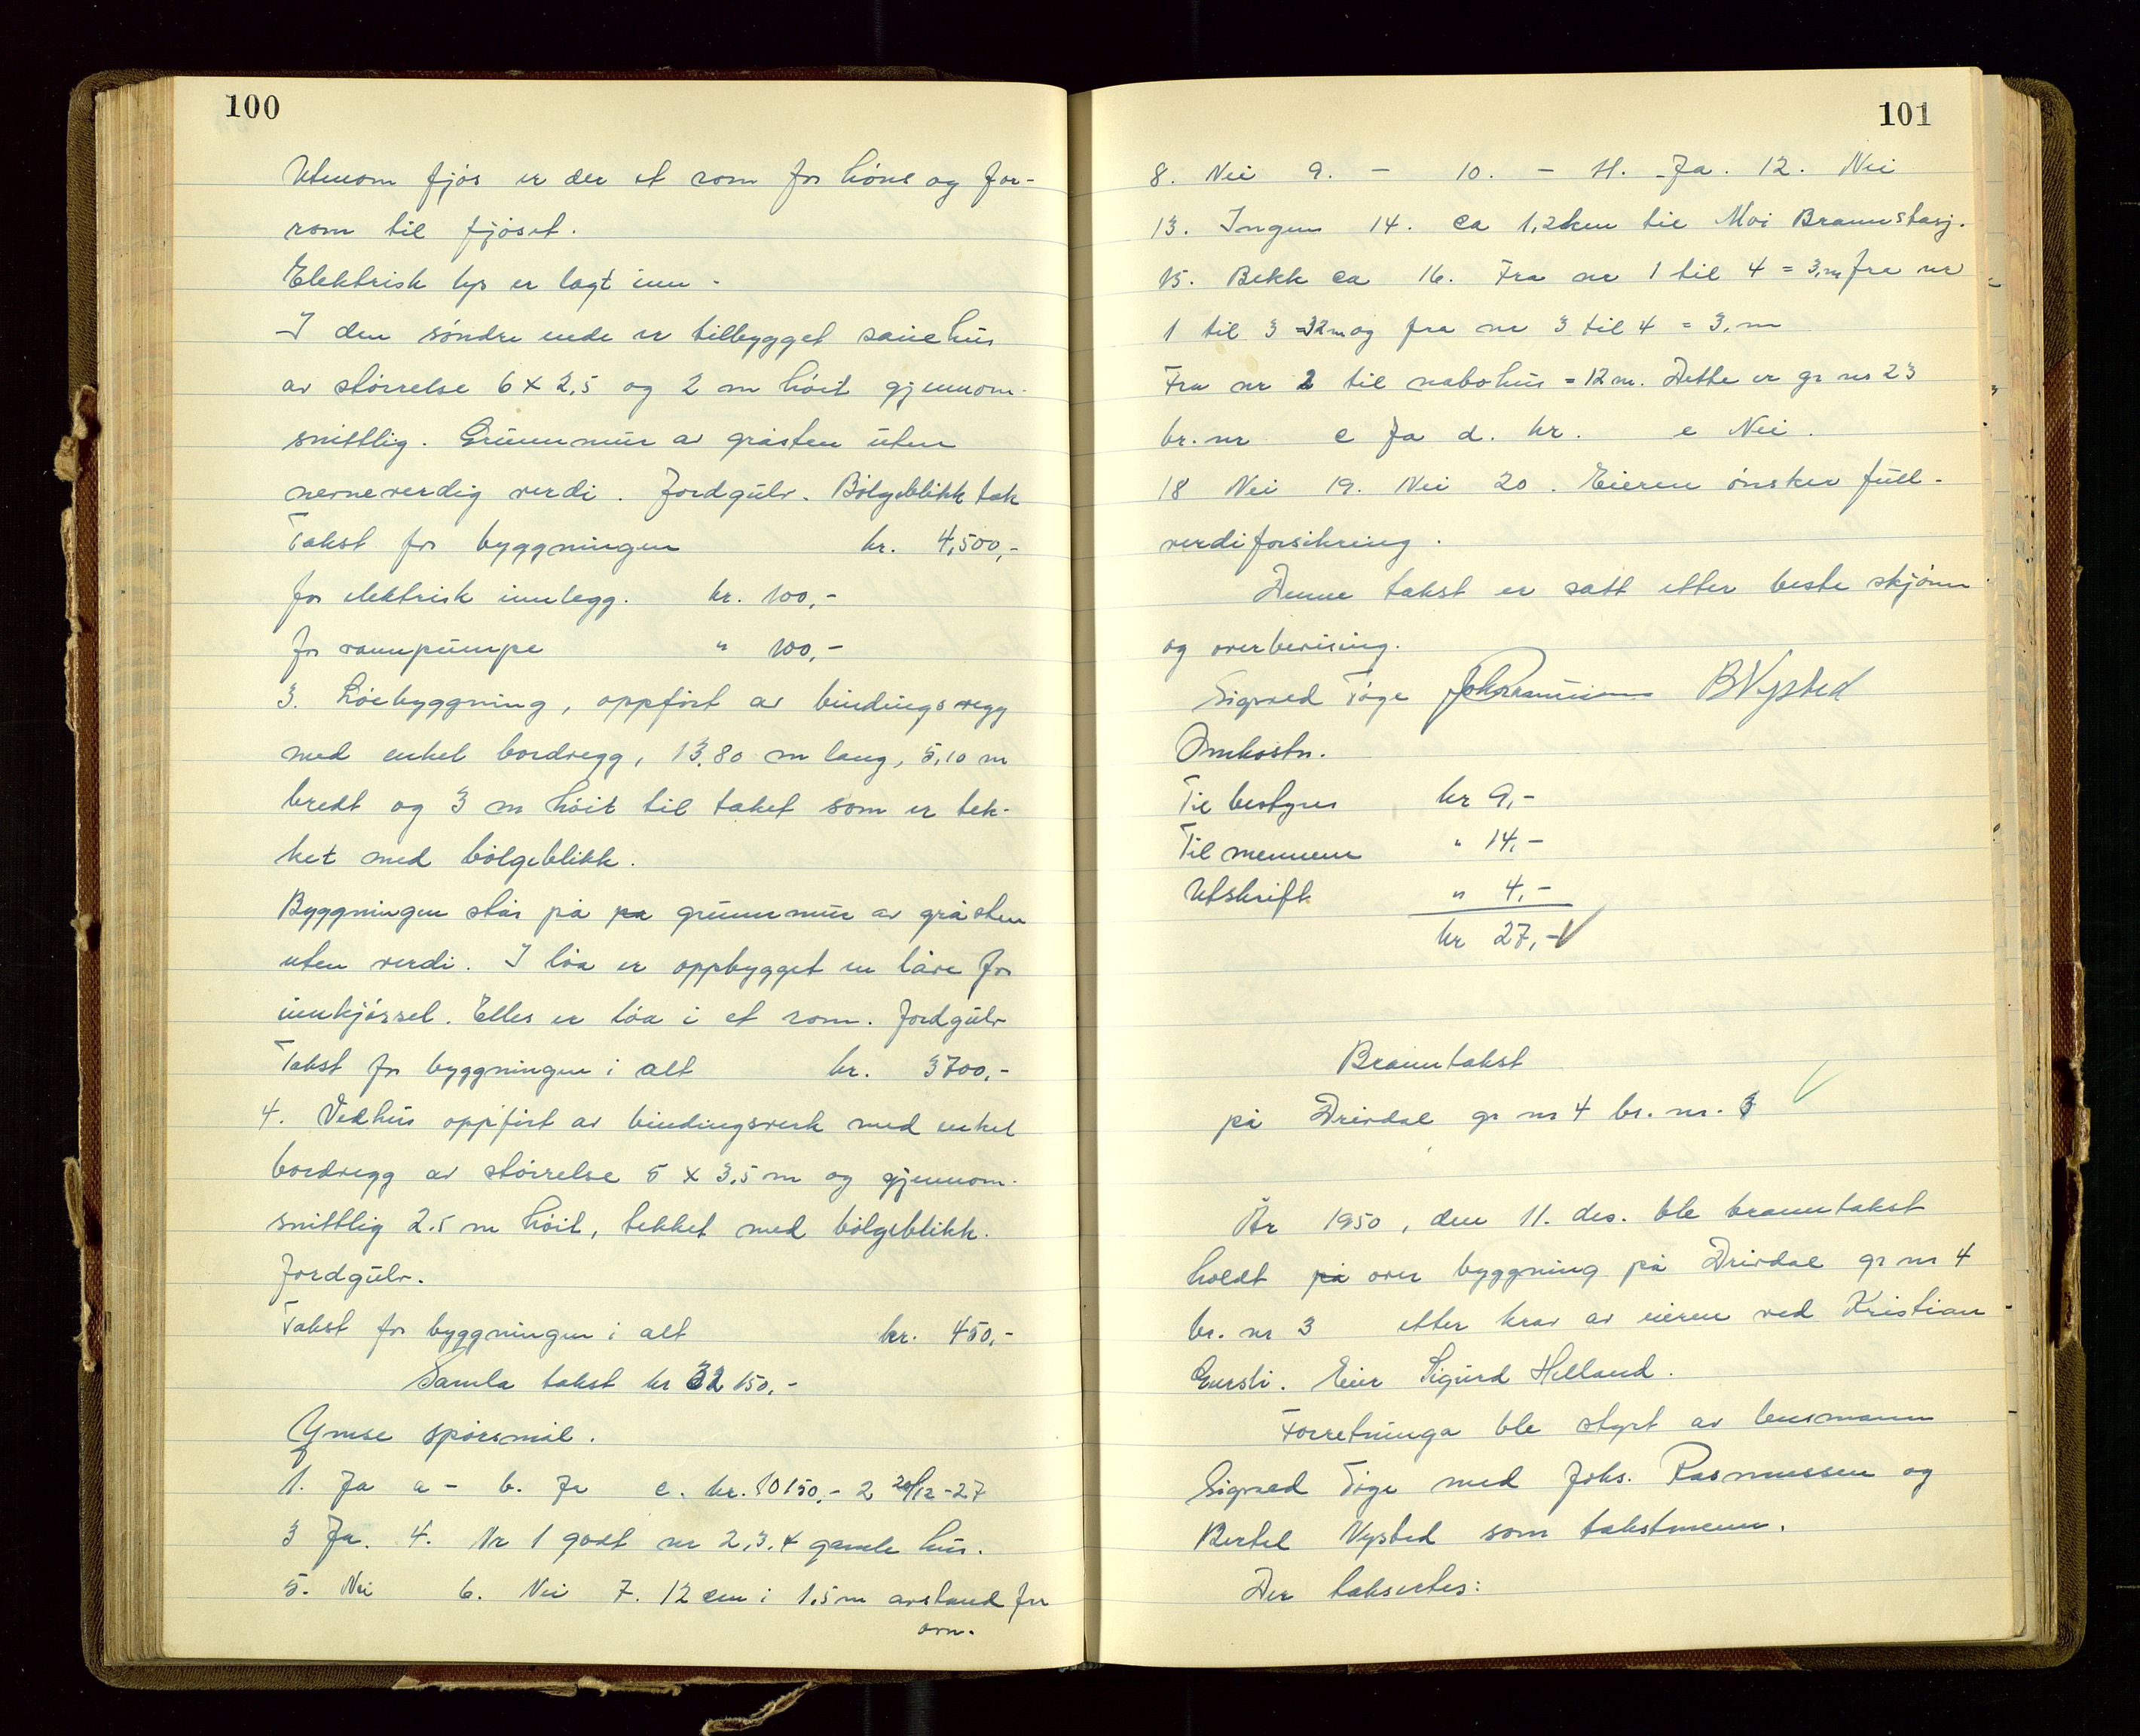 100
Utenom fjøs er der et rom for høns og for-
rom til fjøset.
Elektrisk lys er lagt inn.
I den søndre ende er tilbygget sauehus
av størrelse 6 x 2,5 og 2 m høit gjennom-
snittlig. Grunnmur av gråsten uten
nevneverdig verdi. Jordgulv. Bølgeblikk tak
Takst for byggningen kr. 4,500,-
for elektrisk innlegg. kr. 100,-
for vannpumpe " 100,-
3. Løebyggning, oppført av bindingsvegg
med enkel bordvegg, 13,80 m lang, 5,10 m
bredt og 3 m høit til taket som er tek-
ket med bølgeblikk.
Byggningen står på på grunnmur av gråsten
uten verdi. I løa er oppbygget en låve for
innkjørsel. Elles er løa i et rom. Jordgulv
Takst for byggningen i alt kr. 3700,-
4. Vedhus oppført av bindingsverk med enkel
bordvegg av størrelse 5 x 3,5 m og gjennom-
snittlig 2.5 m høit, tekket med bølgeblikk.
Jordgulv.
Takst for byggningen i alt kr. 450,-
Samla takst kr 32 150,-
Ymse spørsmål.
1. Ja a - b. Ja c. kr. 10150,- 2 20/12-27
3 Ja. 4. Nr 1 godt nr 2,3,4 gamle hus.
5. Nei 6. Nei 7. 12 cm i 1.5 m avstand fra
ovn.
101
8. Nei 9. - 10. - 11. Ja. 12. Nei
13. Ingen 14. ca 1,2 km til Moi Brannstasj.
15. Bekk ca 16. Fra nr 1 til 4 = 3,m fra nr
1 til 3 = 32m og fra nr 3 til 4 = 3,m
Fra nr 2 til nabohus = 12 m. Dette er gr nr 23
br. nr c Ja d. kr. e Nei.
18 Nei 19. Nei 20. Eieren ønsker full-
verdiforsikring.
Denne takst er satt etter beste skjønn
og overbevising.
Sigvald Tøge Joh Rasmussen B Nysted
Omkostn.
Til bestyrer kr 9,-
Til mennene " 14,-
Utskrift " 4,-
kr 27,-
Branntakst
på Drivdal gr nr 4 br. nr. 3
År 1950, den 11. des. ble branntakst
holdt på over byggning på Drivdal gr nr 4
br. nr 3 etter krav av eieren ved Kristian
Gursli. Eier Sigurd Helland.
Forretninga ble styrt av lensmann
Sigvald Tøge med Johs. Rasmussen og
Bertel Nysted som takstmenn.
Der taksertes: